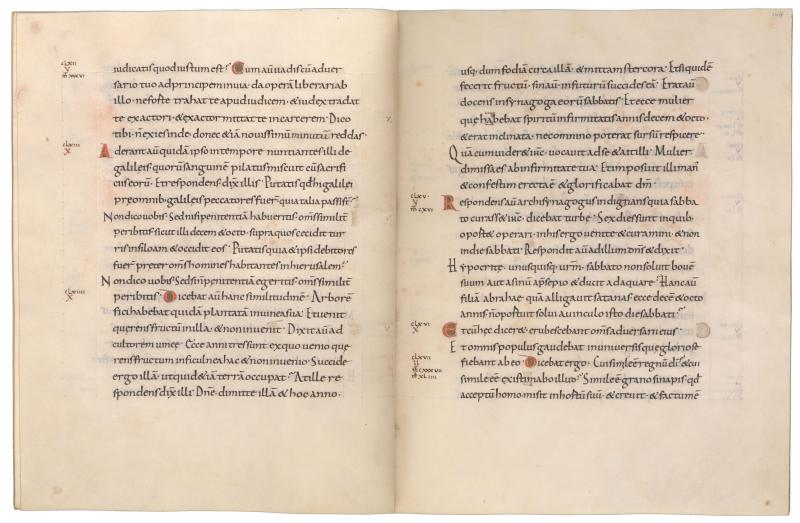 clxii
v
m clxxvi
iudicatis quod iustum est? Cum aū uadis cū aduer
sario tuo ad principem in uia· da operā liberari ab
illo· ne forte trahat te apud iudicem· & iudex tradat
te exactori· & exactor mittat te in carcerem· Dico
tibi· n̄ exies inde· donec &iā nouissimū minutū reddas·
clxiii
x
Aderant aū quidā ipso in tempore nuntiantes illi de
galileis· quorū sanguinē pilatus miscuit cū sacrifi
ciis eorū· Et respondens dix̄ illis· Putatis qđ hi galilei
pre omnib; galileis peccatores fuer̄· quia talia passi s̄?
Non dico uobis· Sed nisi penitentiā habueritis· om̄s similit̄
peribitis· sicut illi decem & octo· supra quos cecidit tur
ris in siloam· & occidit eos· Putatis quia & ipsi debitores
fuer̄ preter om̄s homines habitantes in hierusalem?
clxiiii
x
Non dico uobis· Sed si n̄ penitentiā egeritis· om̄s similit̄
peribitis· Dicebat aū hanc similitudinē· Arborē
fici habebat quidā plantatā in uinea sua· Et uenit
querens fructū in illa· & non inuenit· Dixit aū ad
cultorem uineę· Ecce anni tres sunt ex quo uenio que
rens fructum in ficulnea hac & non inuenio· Succide
ergo illā· ut quid &iā terrā occupat? At ille re
spondens dix̄ illi· Dn̄e· dimitte illā & hoc anno·
usq; dum fodiā circa illā· & mittam stercora· Et si quidē
fecerit fructū· sin aū· in futurū succides eā· Erat aū
docens in synagoga eorū sabbatis· Et ecce mulier
quę habebat spiritū infirmitatis annis decem & octo·
& erat inclinata· nec omnino poterat sursū respicere·
Quā cum uider& ihc· uocauit ad se· & ait illi· Mulier·
dimissa es ab infirmitate tua· Et imposuit illi man̄
& confestim erecta ē· & glorificabat dm̄·
clxv
v
m cxvi
Respondens aū archisynagogus indignans quia sabba
to curass& ihc· dicebat turbę· Sex dies sunt in quib;
oport& operari· in his ergo uenite & curamini· & non
in die sabbati· Respondit aū ad illum dn̄s & dixit·
Hypocritę· unusquisq; urm̄· sabbato non soluit bouē
suum aut asinū a p̄sepio & ducit adaquare· Hanc aū
filiā abrahę· quā alligauit satanas ecce decē & octo
annis· n̄ oportuit solui a uinculo isto die sabbati?
clxvi
x
Et cū hęc dicer&· erubescebant om̄s aduersarii eius
Et omnis populus gaudebat in uniuersis quę gloriose
fiebant ab eo· Dicebat ergo· Cui simile ē regnū dī· & cui
simile eē existimabo illud? Simile ē grano sinapis qđ
acceptū homo misit in hortū suū· & creuit· & factum ē